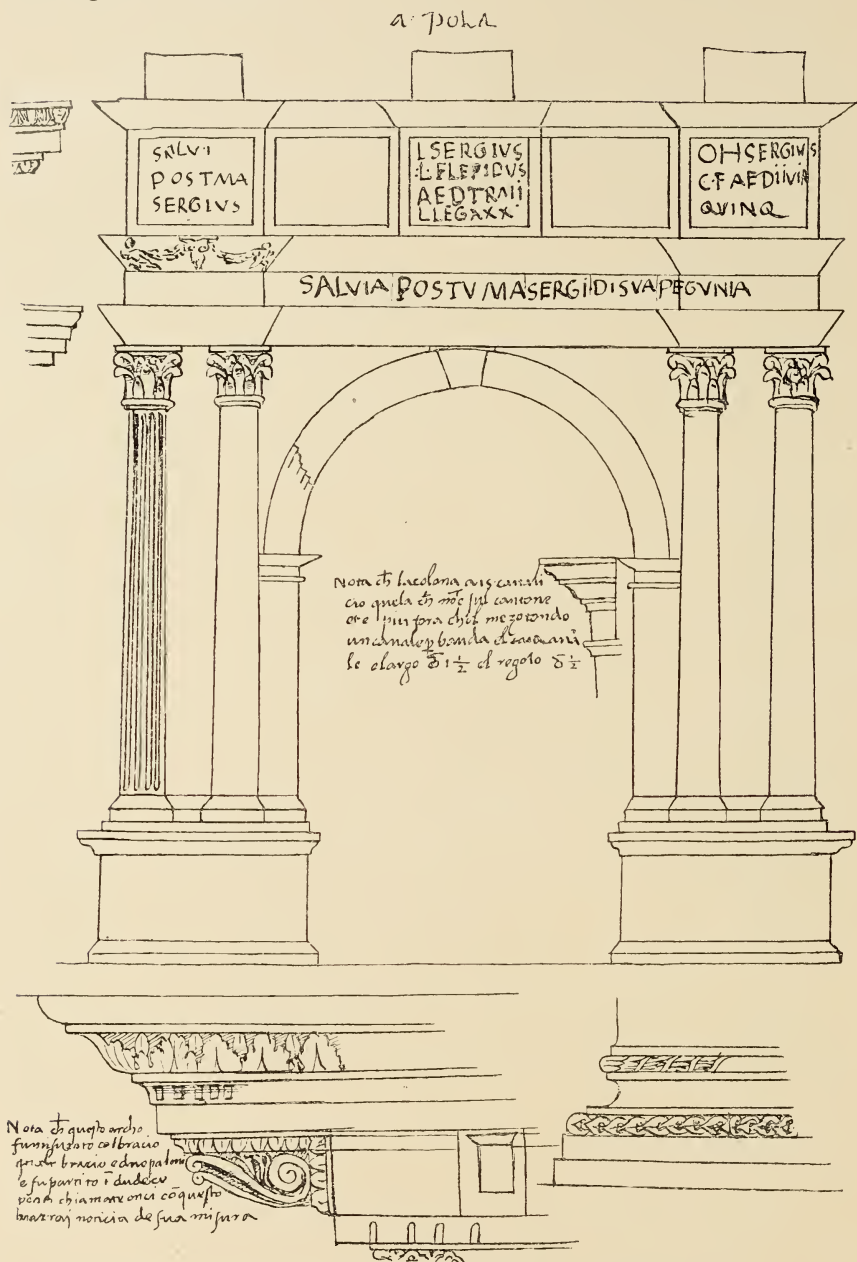 a pola
SALVI
POSTMA
SERGIVS
L SERGIVS
L F LEPIDVS
AED TR MIL
L LEG XX
OH SERGIVS
C F AED II VIR
QVINQ
SALVIA POSTVMA SERGI DI SVA PEGVNIA
Nota ch la colona a
cio quela ch sul cantone
et e piu fora chel mezo tondo
un canale p banda el
le e largo 1 1/2 el regolo 1/2
Nota ch questo archo
fu misurato col bracio
bracio e dua palmi
e fu partito i dudece
chiamate onci cō questo
noticia de sua misura